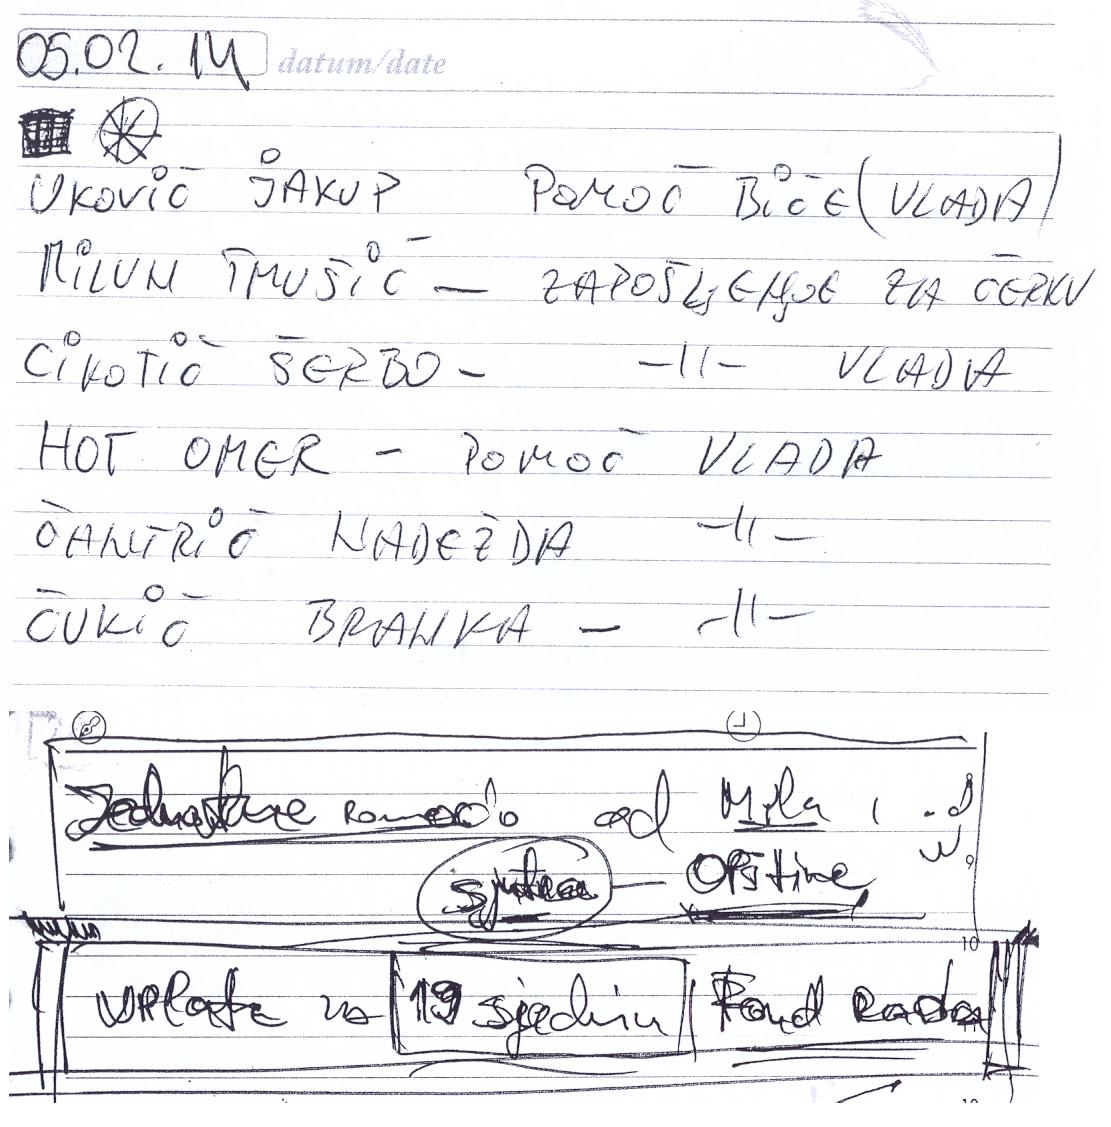 05.02.14 datum/date
UKOVIĆ JAKUP POMOĆ BIĆE (VLADA)
MILUN TMUŠIĆ — ZAPOŠLJENJE ZA ĆERKU
CIKOTIĆ ŠERBO - -11- VLADA
HOT OMER - POMOĆ VLADA
ČANTRIĆ NADEŽDA -11-
ČUKIĆ BRANKA - -11-
od Mila i
9
sjutra — Opštine
10
uplate za 19 sjednicu Fond rada